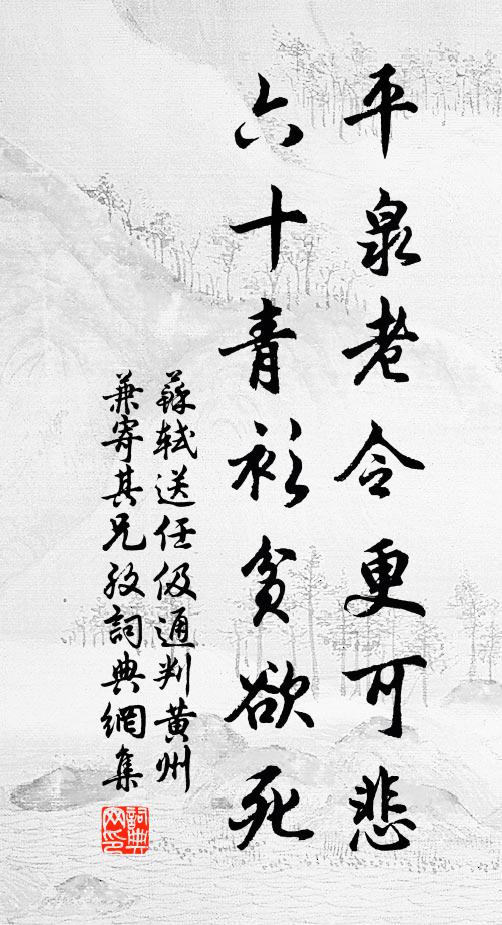 平泉老令更可悲
六十青衫貧欲死
蘇軾送任伋通判黃州
兼寄其兄孜詞典網集
詞典
網印